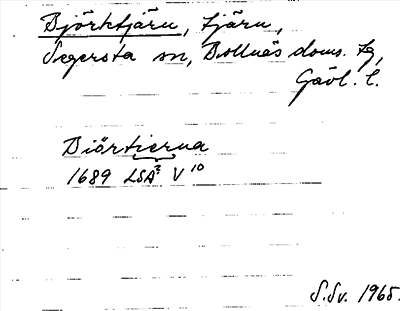 Björktjärn, tjärn,
Segersta sn, Bollnäs doms. tg,
Gävl. l.
Biörtierna
1689 LSA² V 10
S.Sv. 1965.